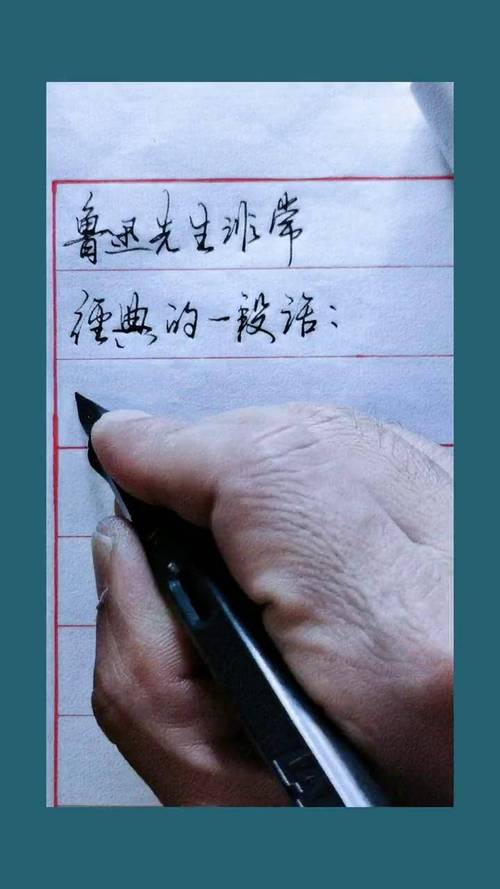 鲁迅先生非常
经典的一段话：